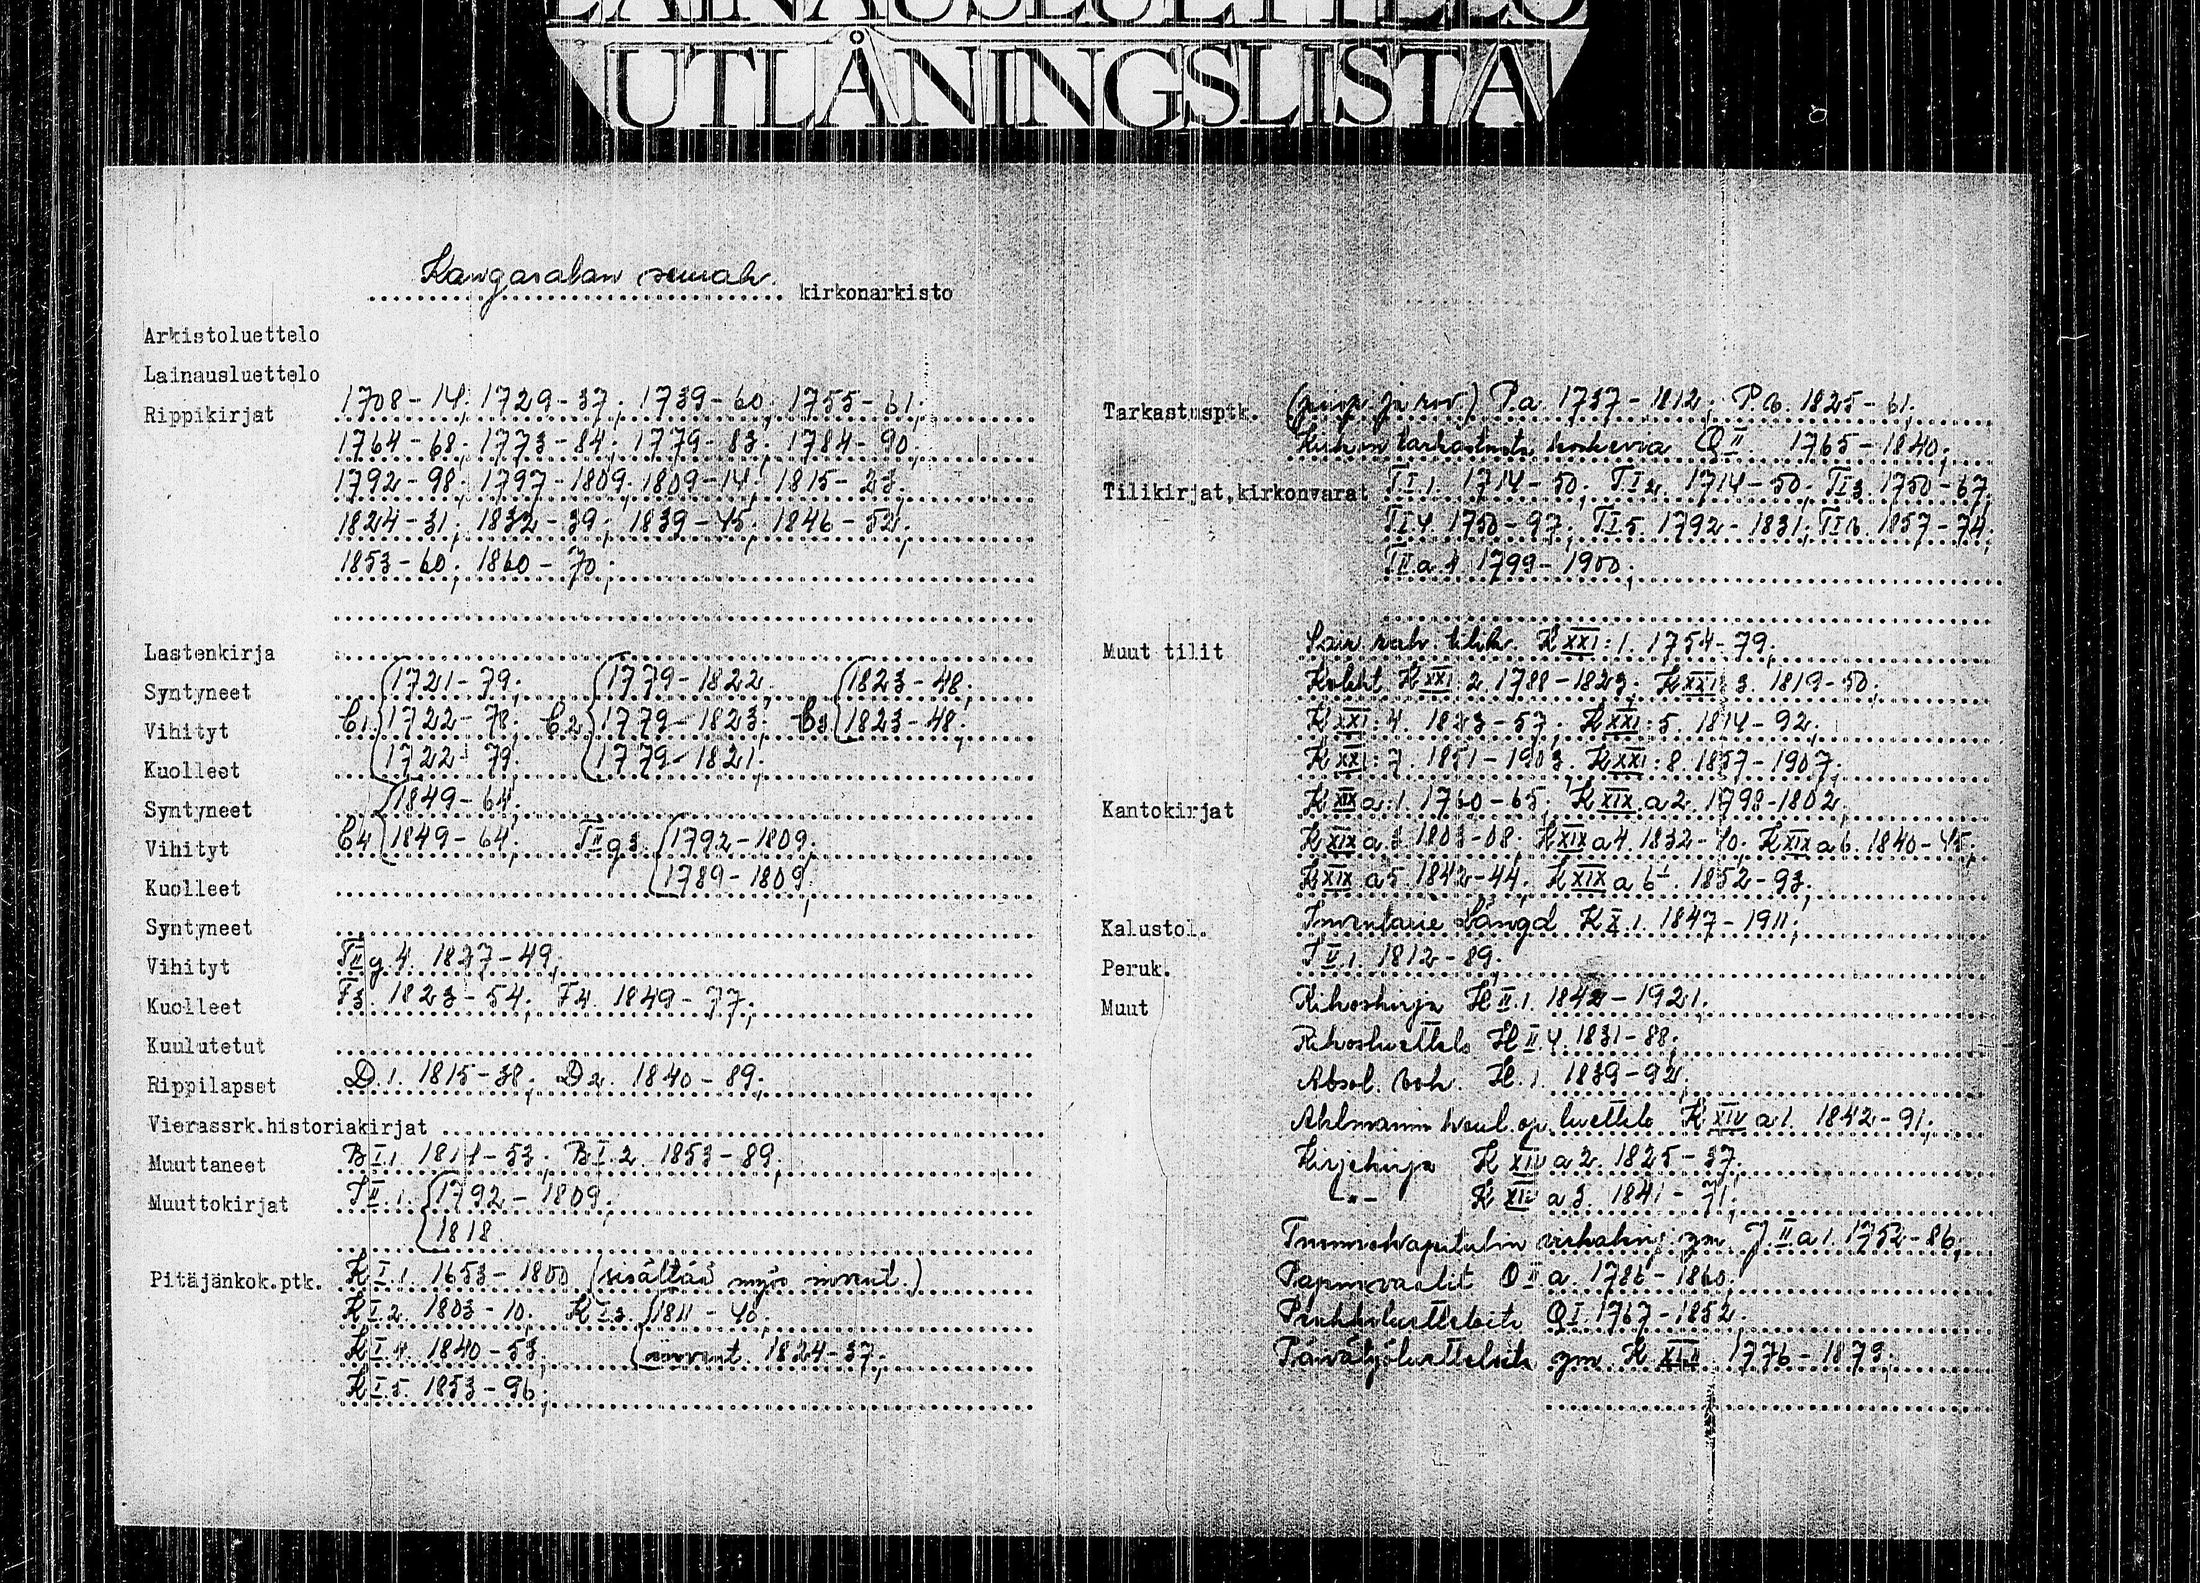 LAINAUSLUETTELO
UTLÅNINGSLISTA
Kangasalan seurak. kirkonarkisto
Arkistoluettelo
Lainausluettelo
Rippikirjat 1708-14; 1729-37; 1739-60; 1755-61;
1764-68; 1773-84; 1779-83; 1784-90;
1792-98; 1797-1809; 1809-14; 1815-23;
1824-31; 1832-39; 1839-45; 1846-52;
1853-60; 1860-70;
Lastenkirja
Syntyneet 1721-79; 1779-1822; 1823-48;
Vihityt C1. 1722-78; C2 1779-1823; C3 1823-48;
Kuolleet 1722-79; 1779-1821;
Syntyneet 1849-64;
Vihityt C4 1849-64; TII g3. 1792-1809;
Kuolleet 1789-1809;
Syntyneet
Vihityt TII g.4. 1837-49;
Kuolleet F3. 1823-54; F4. 1849-77;
Kuulutetut
Rippilapset D.1. 1815-38; D2. 1840-89;
Vierassrk.historiakirjat
Muuttaneet BI.1 1814-53; BI.2. 1853-89;
Muuttokirjat II.1. 1792-1809;
1818.
Pitäjänkok.ptk. KI.1. 1653-1800 (sisältää myös invent.)
KI.2. 1803-10; KI3. 1811-40;
KI.4. 1840-53; invent. 1824-37;
KI.5. 1853-96;
Tarkastusptk. (piisp. ja rov.) P.a. 1737-1812; P.b. 1825-61;
Kirkon tarkastusta koskevia QII. 1765-1840;
Tilikirjat,kirkonvarat TI.1. 1714-50; TI2. 1714-50; TI3. 1750-67;
TI4. 1750-97; TI5. 1792-1831; TI6. 1857-74;
TII.a.4. 1799-1900;
Muut tilit KXXI:1. 1754-79;
Koleht. KXXI:2. 1788-1823; KXXI:3. 1819-50;
KXXI:4. 1823-57; KXXI:5. 1814-92;
KXXI:7. 1851-1903; KXXI:8. 1857-1907;
Kantokirjat KXIX a:1. 1760-65; KXIX.a2. 1798-1802;
KXIX a.3. 1803-08; KXIX a4. 1832-40; KXIX a6. 1840-45;
KXIX.a5. 1842-44; KXIX a 6. 1852-93;
Kalustol. Inventarie Längd KX.1. 1847-1911;
Peruk. IV.1. 1812-89;
Muut Rikoskirja HII.1. 1842-1921.
Rikosluettelo HII.4. 1831-88;
Absol. bok. H.1. 1839-92;
Ahlmannin koul. op. luettelo KXIV a1. 1842-91;
Kirjekirja KXIV a2. 1825-37;
-"- KXIV a3. 1841-71;
Tuomiokapitulin virkakirj. ym. J.II a1. 1752-86;
Papinvaalit OII a. 1786-1860;
Penkkiluetteloita QI. 1767-1852;
Päivätyöluetteloita ym. KXIII 1776-1879;